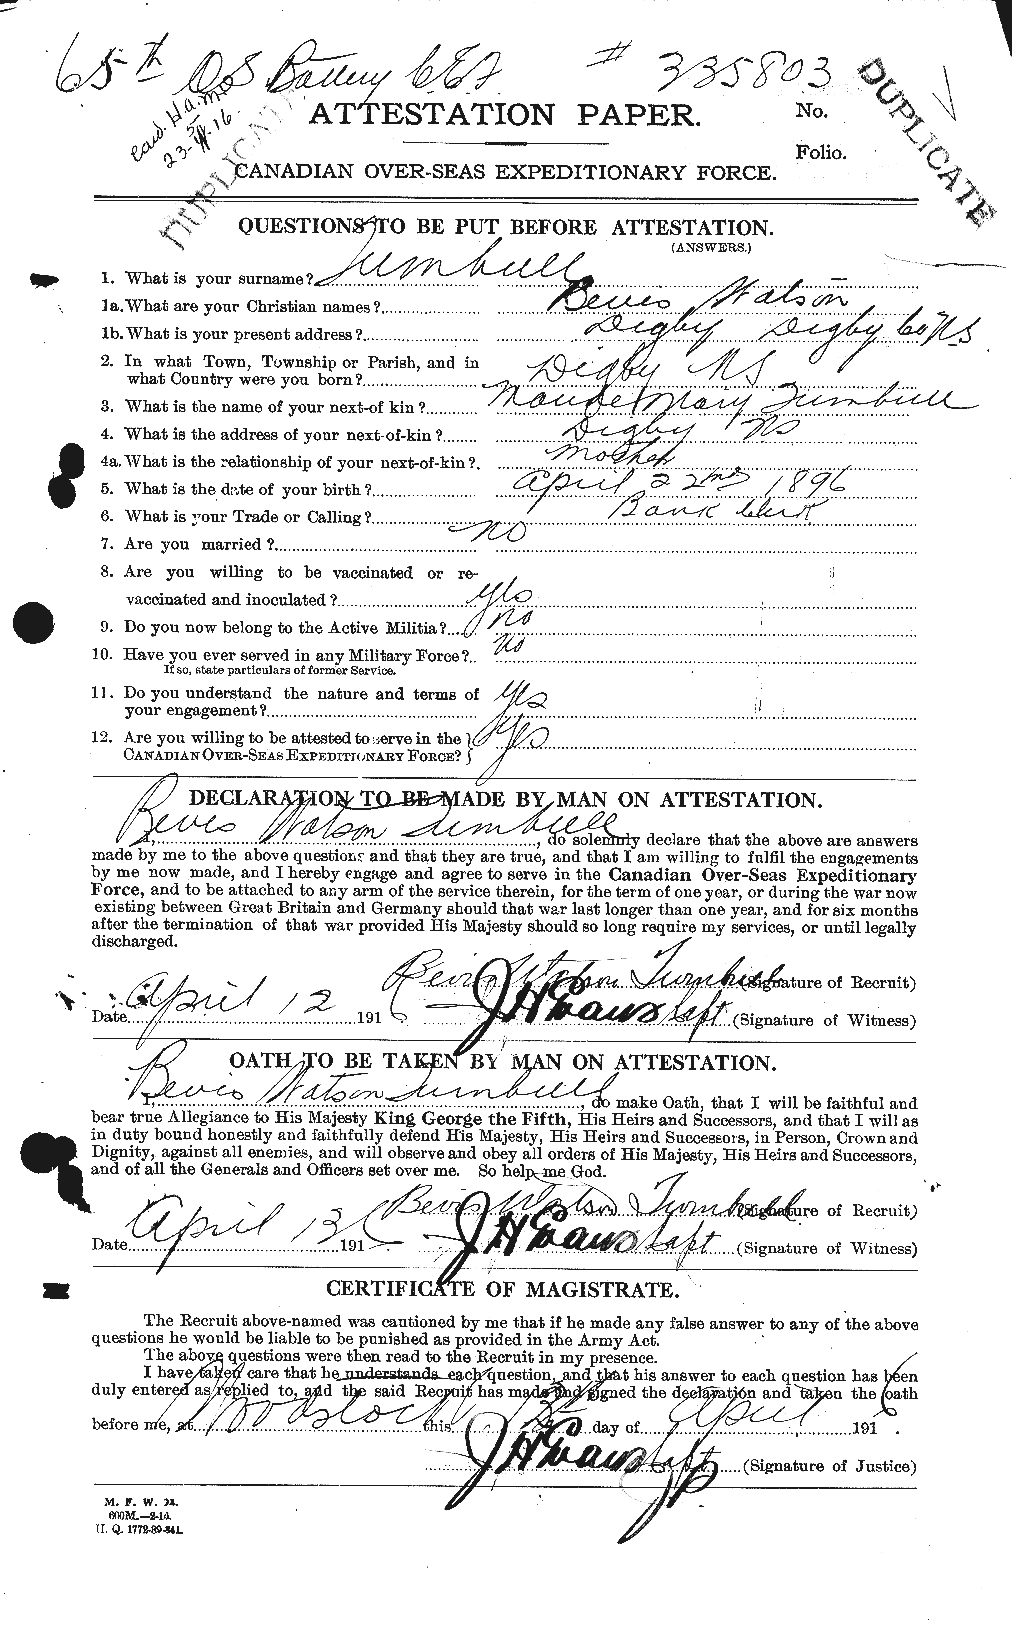 65th OS Battery CEF # 335803
Card. Ha.
DUPLICATE
DUPLICATE
ATTESTATION PAPER. No.
Folio.
CANADIAN OVER-SEAS EXPEDITIONARY FORCE.
QUESTIONS TO BE PUT BEFORE ATTESTATION.
(ANSWERS.)
1. What is your surname? Turnbull
1a. What are your Christian names? Bevis Watson
1b. What is your present address? Digby Digby Co NS
2. In what Town, Township or Parish, and in
what Country were you born? Digby NS
3. What is the name of your next-of kin? Mary Turnbull
4. What is the address of your next-of-kin? Digby NS
4a. What is the relationship of your next-of-kin? Mother
5. What is the date of your birth? April 22nd 1896
6. What is your Trade or Calling? Bank Clerk
7. Are you married? No
8. Are you willing to be vaccinated or re-
vaccinated and inoculated? Yes
9. Do you now belong to the Active Militia? No
10. Have you ever served in any Military Force? No
If so, state particulars of former Service.
11. Do you understand the nature and terms of
your engagement? Yes
12. Are you willing to be attested to serve in the
CANADIAN OVER-SEAS EXPEDITIONARY FORCE? Yes
DECLARATION TO BE MADE BY MAN ON ATTESTATION.
I, Bevis Watson Turnbull, do solemnly declare that the above are answers
made by me to the above questions and that they are true, and that I am willing to fulfil the engagements
by me now made, and I hereby engage and agree to serve in the Canadian Over-Seas Expeditionary
Force, and to be attached to any arm of the service therein, for the term of one year, or during the war now
existing between Great Britain and Germany should that war last longer than one year, and for six months
after the termination of that war provided His Majesty should so long require my services, or until legally
discharged.
Bevis Watson Turnbull (Signature of Recruit)
Date April 12 1916 J H Evans Capt (Signature of Witness)
OATH TO BE TAKEN BY MAN ON ATTESTATION.
I, Bevis Watson Turnbull, do make Oath, that I will be faithful and
bear true Allegiance to His Majesty King George the Fifth, His Heirs and Successors, and that I will as
in duty bound honestly and faithfully defend His Majesty, His Heirs and Successors, in Person, Crown and
Dignity, against all enemies, and will observe and obey all orders of His Majesty, His Heirs and Successors,
and of all the Generals and Officers set over me. So help me God.
Bevis Watson Turnbull (Signature of Recruit)
Date April 13 1916 J H Evans Capt (Signature of Witness)
CERTIFICATE OF MAGISTRATE.
The Recruit above-named was cautioned by me that if he made any false answer to any of the above
questions he would be liable to be punished as provided in the Army Act.
The above questions were then read to the Recruit in my presence.
I have taken care that he understands each question, and that his answer to each question has been
duly entered as replied to, and the said Recruit has made and signed the declaration and taken the oath
before me, at Woodstock this 13th day of April 1916.
J H Evans Capt JP (Signature of Justice)
M. F. W. 23.
600M.—2-16.
H. Q. 1772-39-841.